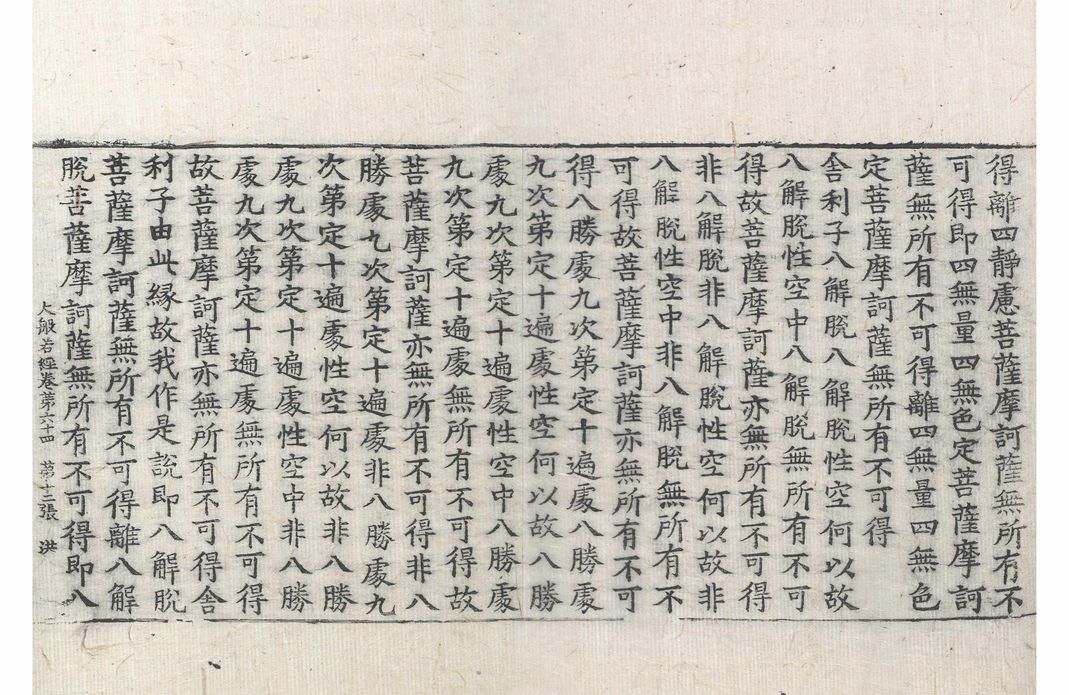 得離四靜慮菩薩摩訶薩無所有不
可得即四無量四無色定菩薩摩訶
薩無所有不可得離四無量四無色
定菩薩摩訶薩無所有不可得
舎利子八解脫八解脫性空何以故
八解脫性空中八解脫無所有不可
得故菩薩摩訶薩亦無所有不可得
非八解脫非八解脫性空何以故非
八解脫性空中非八解脫無所有不
可得故菩薩摩訶薩亦無所有不可
得八勝處九次第定十遍處八勝處
九次第定十遍處性空何以故八勝
處九次第定十遍處性空中八勝處
九次第定十遍處無所有不可得故
菩薩摩訶薩亦無所有不可得非八
勝處九次第定十遍處非八勝處九
次第定十遍處性空何以故非八勝
處九次第定十遍處性空中非八勝
處九次第定十遍處無所有不可得
故菩薩摩訶薩亦無所有不可得舍
利子由此緣故我作是說即八解脫
菩薩摩訶薩無所有不可得離八解
脫菩薩摩訶薩無所有不可得即八
大般若經卷第六十四 第十二張 洪